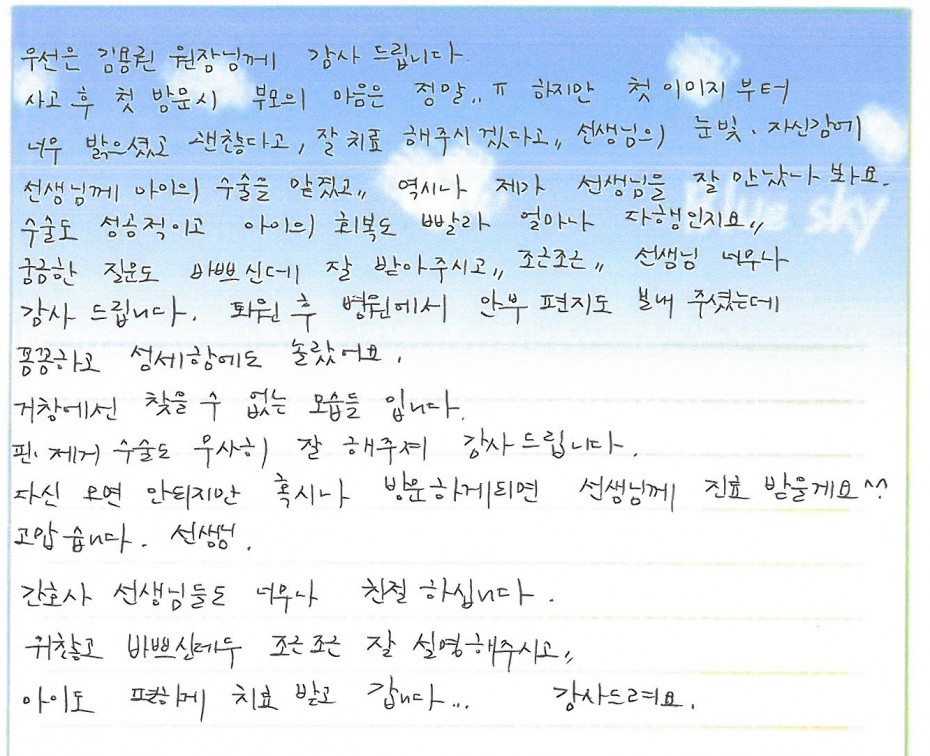 우선은 김용린 원장님께 감사 드립니다.
사고 후 첫 방문시 부모의 마음은 정말,, ㅠ 하지만 첫 이미지 부터
너무 밝으셨고 괜찮다고, 잘 치료 해주시겠다고,, 선생님의 눈빛. 자신감에
선생님께 아이의 수술을 맡겼고,, 역시나 제가 선생님을 잘 만났나 봐요.
수술도 성공적이고 아이의 회복도 빨라 얼마나 다행인지요,,
궁금한 질문도 바쁘신데 잘 받아주시고,, 조근조근,, 선생님 너무나
감사 드립니다. 퇴원 후 병원에서 안부 편지도 보내 주셨는데
꼼꼼하고 섬세함에도 놀랐어요.
거창에선 찾을 수 없는 모습들 입니다.
핀 제거 수술도 무사히 잘 해주셔 감사드립니다.
다신 오면 안되지만 혹시나 방문하게되면 선생님께 진료 받을게요^^
고맙습니다. 선생님.
간호사 선생님들도 너무나 친절 하십니다.
귀찮고 바쁘신데두 조근조근 잘 설명해주시고,,
아이도 편하게 치료 받고 갑니다... 감사드려요.
blue sky